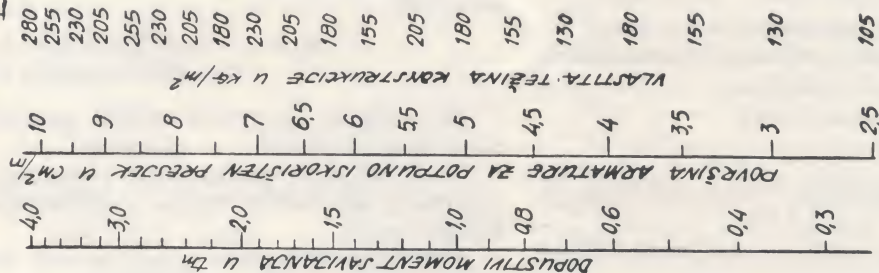 280 255 230 205 255 230 205 180 230 205 180 155 205 180 155 130 180 155 130 105
VLASTITA TEŽINA KONSTRUKCIJE U KG/m²
10 9 8 7 6,5 6 5,5 5 4,5 4 3,5 3 2,5
POVRŠINA ARMATURE ZA POTPUNO ISKORIŠTEN PRESJEK U CM²/m
4,0 3,0 2,0 1,5 1,0 0,8 0,6 0,4 0,3
DOPUSTIVI MOMENT SAVIJANJA U tm